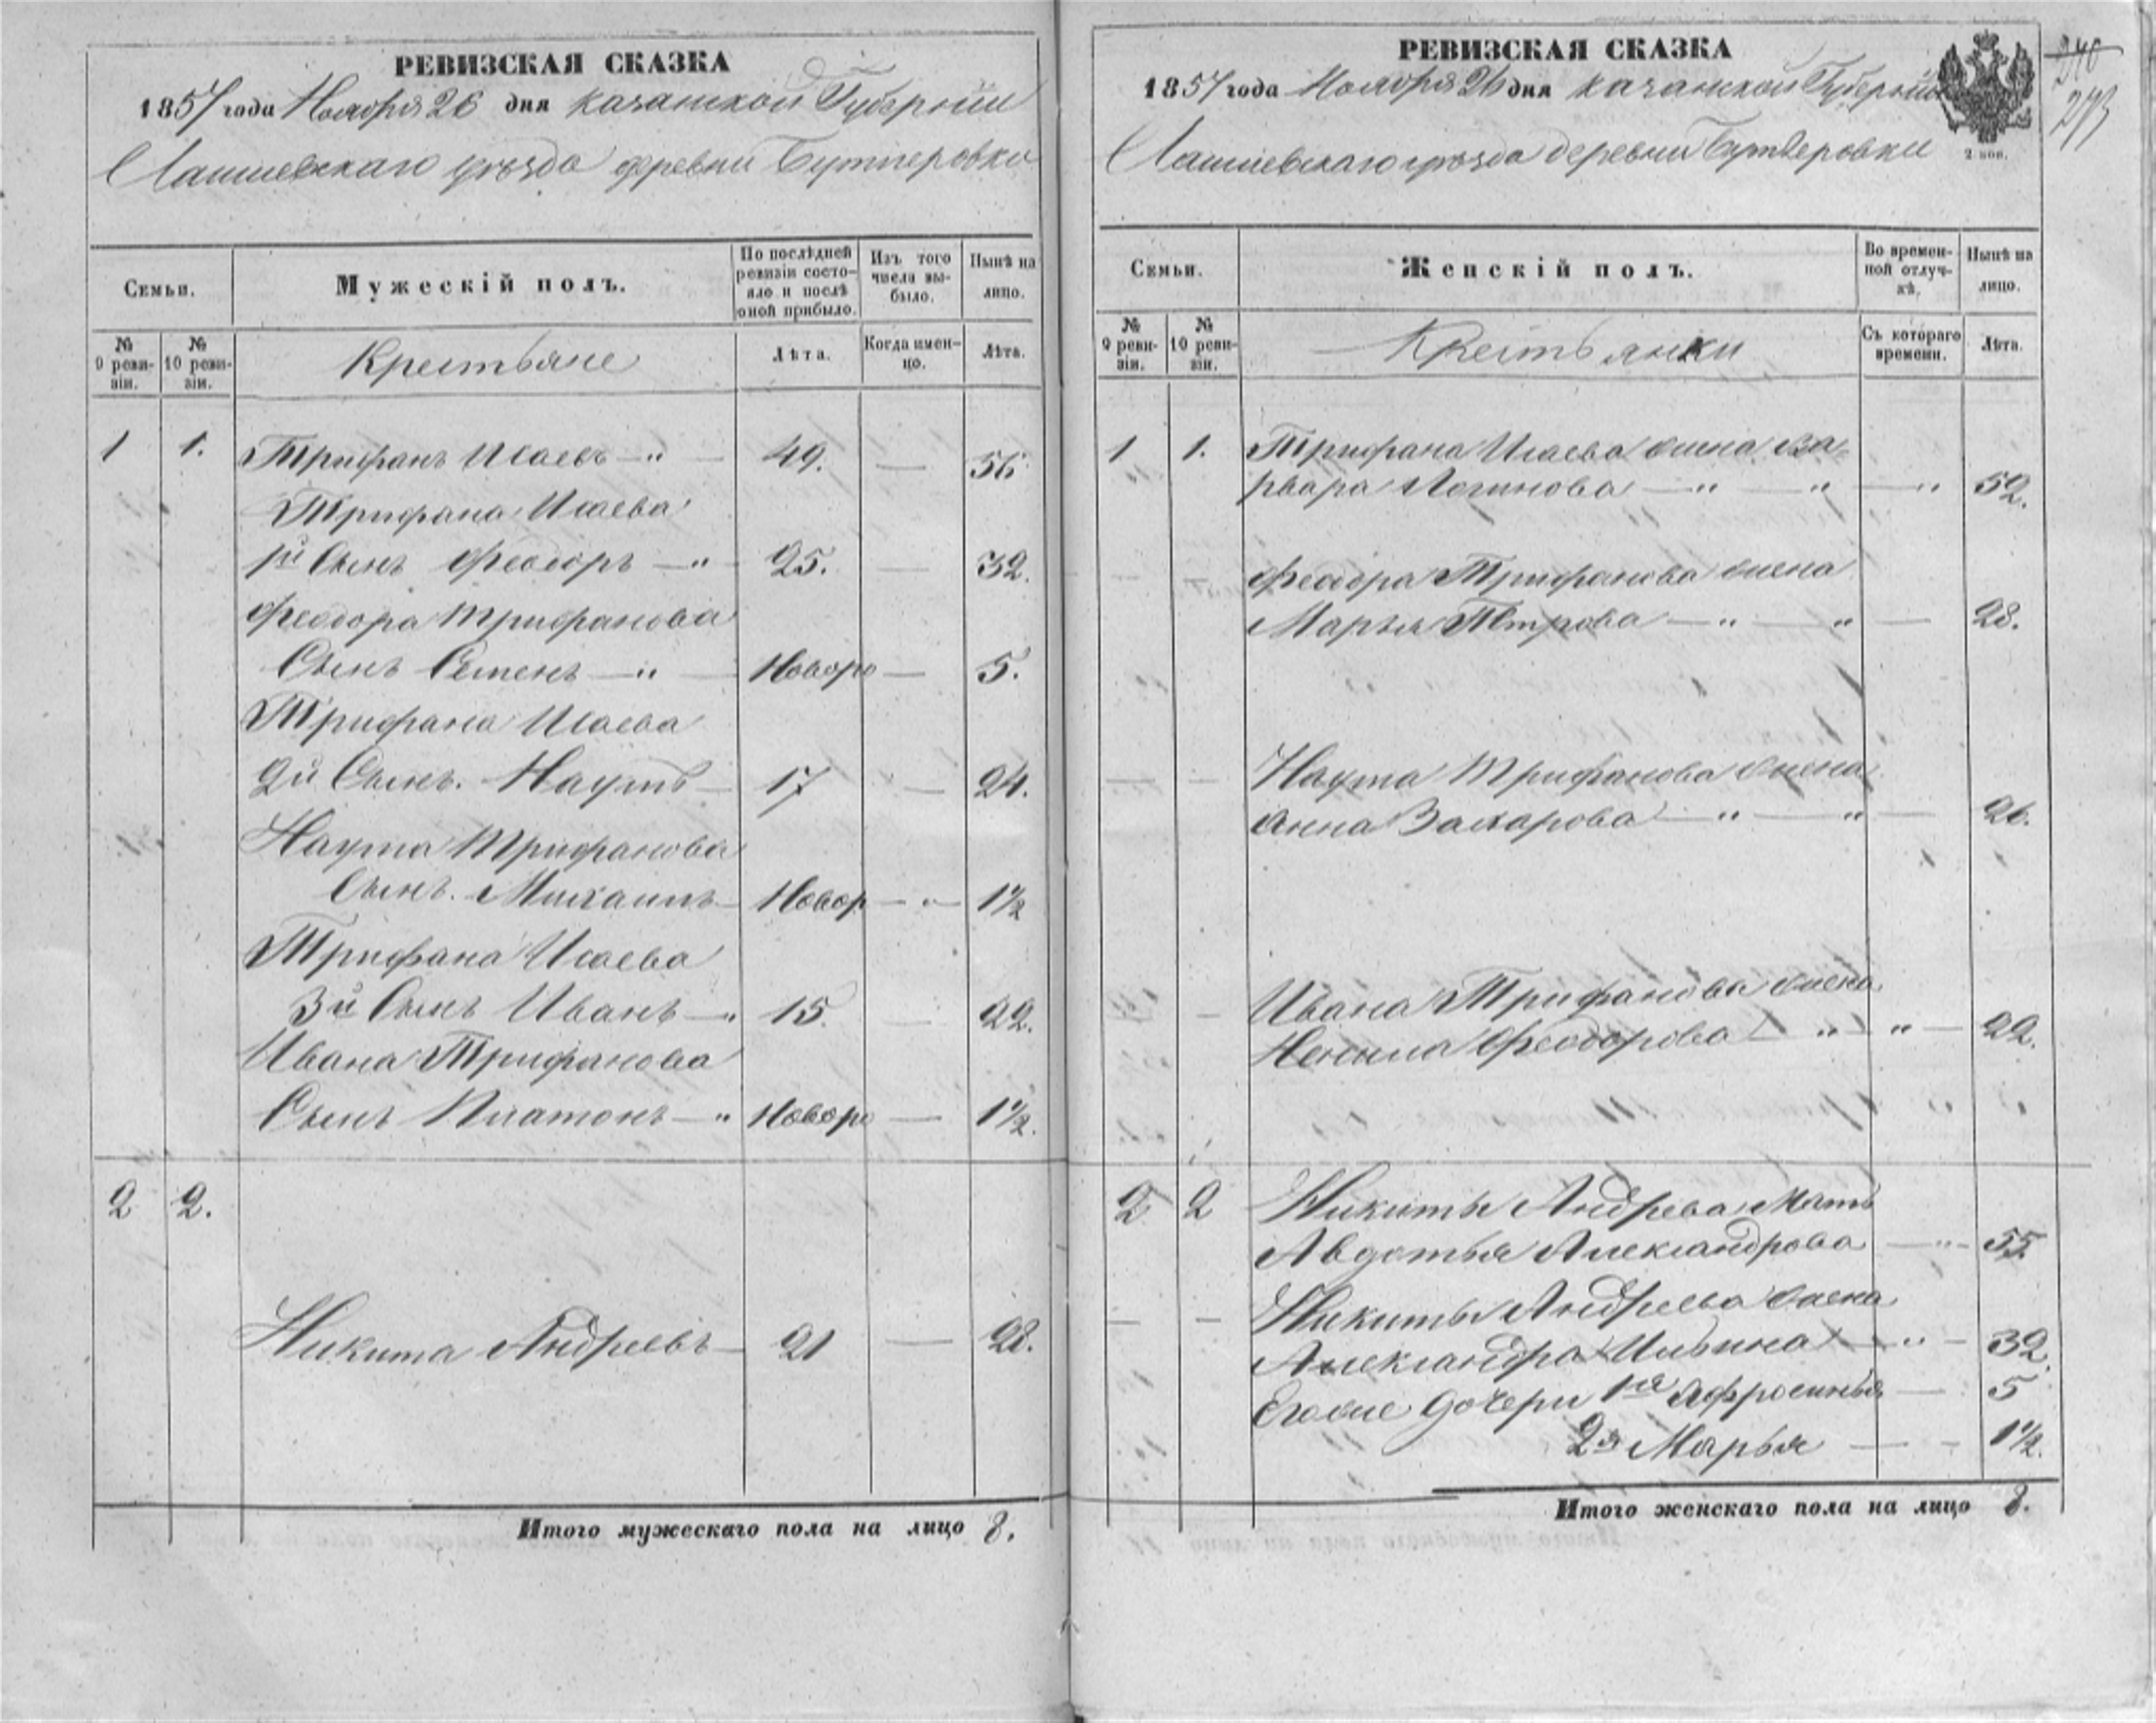 РЕВИЗСКАЯ СКАЗКА
1857 года Ноября 26 дня Казанской Губерніи
Лаишевскаго уѣзда деревни Бутлеровки
Семьи.
Мужескій полъ.
По послѣдней ревизіи состояло и послѣ оной прибыло.
Изъ того числа выбыло.
Нынѣ на лицо.
№ 9 ревизіи.
№ 10 ревизіи.
Крестьяне
Лѣта.
Когда именно.
Лѣта.
1 1. Трифанъ Исаевъ — " — 49. — 56.
Трифана Исаева
1й Сынъ Феодоръ — " 25. — 32.
Феодора Трифанова
Сынъ Семенъ — " — Новоро — 5.
Трифана Исаева
2й Сынъ. Наумъ — 17 — 24.
Наума Трифанова
Сынъ. Михаилъ — Новор — " — 1½
Трифана Исаева
3й Сынъ Иванъ — " 15. — 22.
Ивана Трифанова
Сынъ Платонъ — " Новоро — 1½.
2 2.
Никита Андреевъ — 21 — 28.
Итого мужескаго пола на лицо 8.
РЕВИЗСКАЯ СКАЗКА
1857 года Ноября 26 дня Казанской Губерніи
Лаишевскаго уѣзда деревни Бутлеровки
2 коп.
240
273
Семьи.
Женскій полъ.
Во временной отлучкѣ.
Нынѣ на лицо.
№ 9 ревизіи.
№ 10 ревизіи.
Крестьянки
Съ котораго времени.
Лѣта.
1 1. Трифана Исаева жена Ва=
рвара Логинова — " — " — " 52.
Феодора Трифанова жена
Марья Петрова — " — " — 28.
Наума Трифанова жена
Анна Захарова — " — " — 26.
Ивана Трифанова жена
Ненила Феодорова — " " — 22.
2 2 Никиты Андреева Мать
Авдотья Александрова — " — 55.
Никиты Андреева жена
Александра Ильина — " — 32.
Егоже дочери 1я Афросинья — 5
2я Марья — - 1½.
Итого женскаго пола на лицо 8.